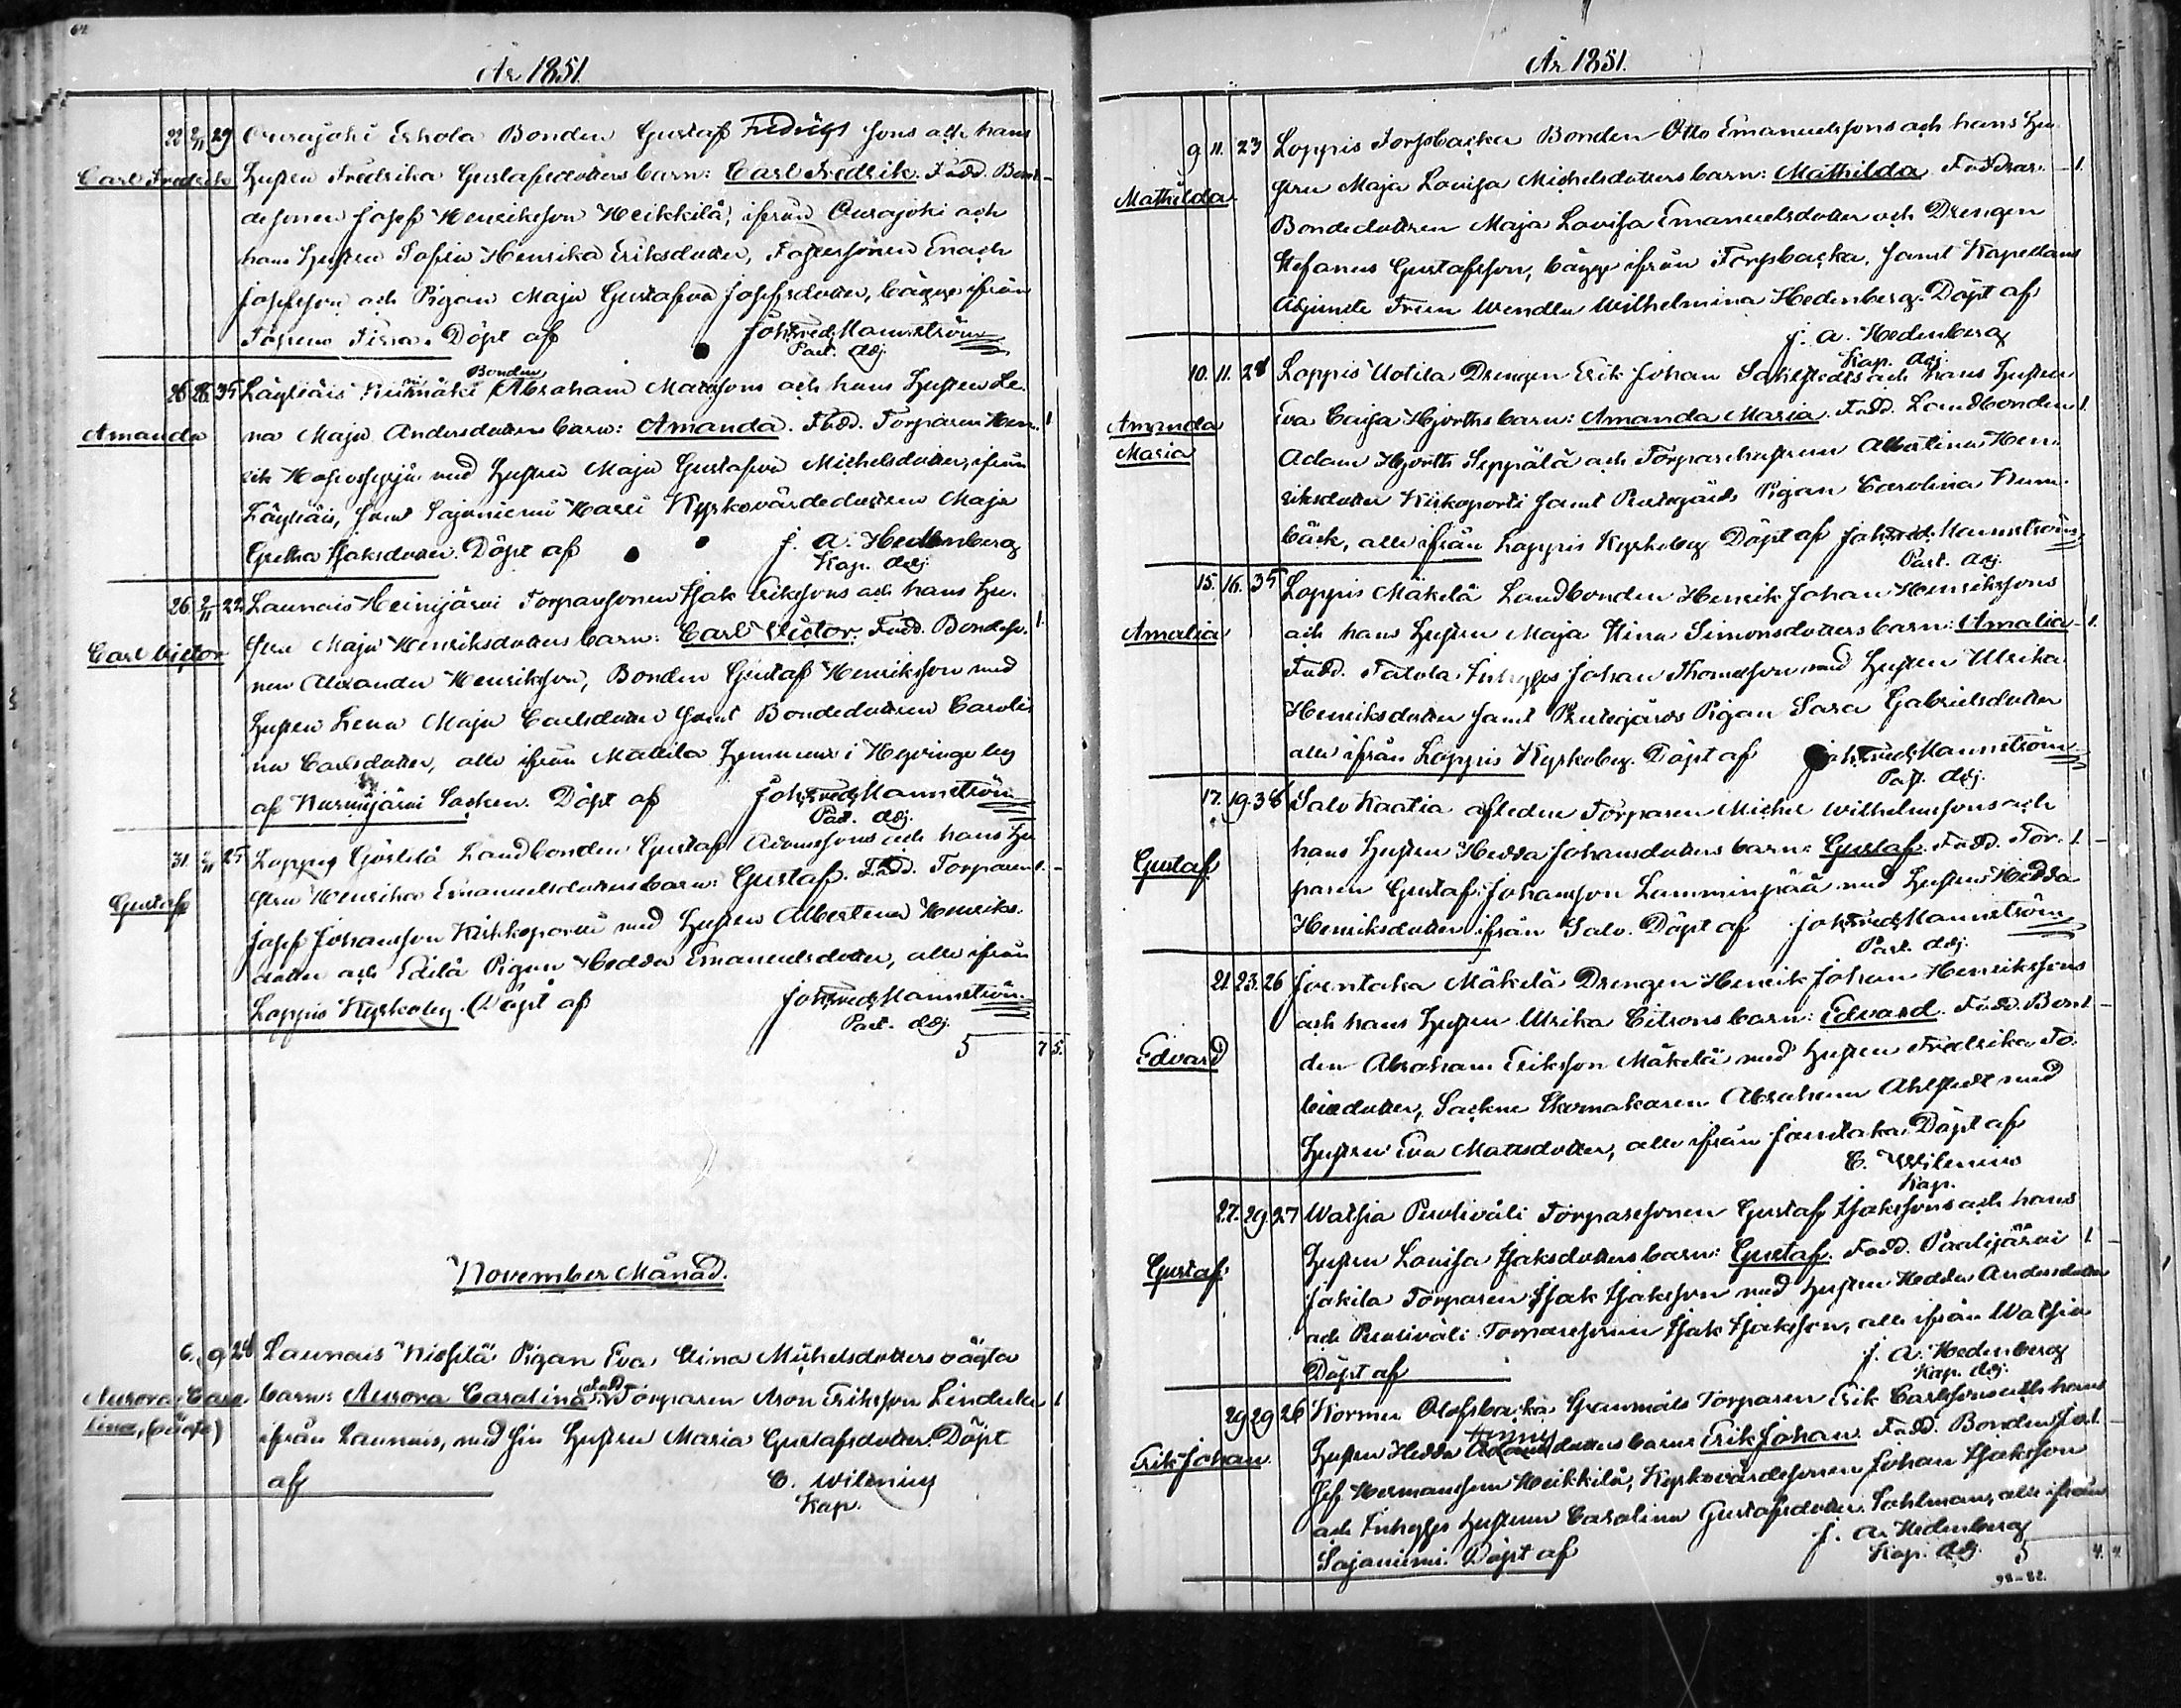 64
År 1851.
22 2/11 29 Ourajoki Erkola Bonden Gustaf Fredrigs sons och hans
Carl Fredrik Hustru Fredrika Gustafsdotters barn: Carl Fredrik. Fadd. Bon- 1
desonen Josef Henriksson Heikkilä, ifrån Ourajoki och
hans Hustru Sofia Henrika Eriksdotter, Enach
Josefsson och Pigan Maja Gustafva Josefsdotter, bägge ifrån
Döpt af Joh. Fred. Mannström
Past. Adj.
Bonden
26 28 35 Läyliäis Abraham Matssons och hans Hustru Le-
Amanda na Maja Andersdotters barn: Amanda. Fadd. Torparen Hen- 1
rik med Hustru Maja Gustafva Michelsdotter, ifrån
Läyliäis, samt Sajaniemi Harri Kyrkovärdedottren Maja
Greta Isaksdotter. Döpt af J. A. Hedenberg
Kap. Adj.
26 2/11 22 Launois Heinijärvi Torparesonen Isak Erikssons och hans Hu-
Carl Victor stru Maja Henriksdotters barn: Carl Victor. Fadd. Bondeso- 1
nen Alexander Henriksson, Bonden Gustaf Henriksson med
Hustru Lena Maja Carlsdotter samt Bondedottren Caroli-
na Carlsdotter, alle ifrån Mattila Hemman i Hyvinge by
af Nurmijärvi Socken. Döpt af Joh. Fred. Mannström
Past. Adj.
31. 2/11 25 Loppis Göstilä Landbonden Gustaf Adamssons och hans Hu-
Gustaf stru Henrika Emanuelsdotters barn: Gustaf. Fadd. Torparen 1. -
Josef Johansson Kirkkoportti med Hustru Albertina Henriks-
dotter och Edilä Pigan Hedda Emanuelsdotter, alle ifrån
Loppis Kyrkoby. Döpt af Joh. Fred. Mannström
Past. Adj.
5 7 5.
November Månad.
6. 9 28 Launois Pigan Eva Stina Michelsdotters oägta
Aurora Caro- barn: Aurora Carolina Fadd. Torparen Aron Eriksson Lindula 1
lina, (oägta) ifrån Launois, med sin Hustru Maria Gustafsdotter. Döpt
af C. Wilenius
Kap.
År 1851.
9 11. 23 Loppis Forssbacka Bonden Otto Emanuelssons och hans Hu-
Mathilda stru Maja Lovisa Michelsdotters barn: Mathilda. Faddrar. - 1.
Bondedottren Maja Lovisa Emanuelsdotter och Drengen
Stefanus Gustafsson, bägge ifrån Forssbacka, samt Kapellans
Adjunkts Fruen Wendla Wilhelmina Hedenberg. Döpt af
J. A. Hedenberg
Kap. Adj.
10. 11. 28 Loppis Uotila Drengen Erik Johan Sahlstedts och hans Hustru
Amanda Maria Eva Caisa Hjorths barn: Amanda Maria. Fadd. Landbonden 1.
Adam Hjorth Seppälä och Torparehustrun Albertina Hen-
riksdotter Kirkoportti samt Prestegårds Pigan Carolina
bäck, alle ifrån Loppis Kyrkoby Döpt af Joh. Fred. Mannström
Past. Adj.
15. 16. 35 Loppis Mäkelä Landbonden Henrik Johan Henrikssons
Amalia och hans Hustru Maja Stina Simonsdotters barn: Amalia - 1.
Fadd. Tatola Inhyses Johan Thomasson med Hustru Ulrika
Henriksdotter samt Prestegårds Pigan Sara Gabrielsdotter
alle ifrån Loppis Kyrkoby. Döpt af Joh. Fred. Mannström
Past. Adj.
17. 19 38 Salo Kaatia afledne Torparen Michel Wilhelmssons och
Gustaf hans Hustru Hedda Johansdotters barn: Gustaf. Fadd. Tor- 1. -
paren Gustaf Johansson Lamminpää med Hustru Hedda
Henriksdotter ifrån Salo. Döpt af Joh. Fred. Mannström
Past. Adj.
21. 23. 26 Joentaka Mäkelä Drengen Henrik Johan Henrikssons
Edvard och hans Hustru Ulrika Citrons barn: Edvard. Fadd. Bon- 1 -
den Abraham Eriksson Mäkelä med Hustru Fredrika To-
biedotter, Sockne Skomakaren Abraham Ahlstedt med
Hustru Eva Matsdotter, alle ifrån Joentaka. Döpt af
C. Wilenius
Kap.
27. 29 27 Watsia Torparesonen Gustaf Isakssons och hans
Gustaf Hustru Lovisa Isaksdotters barn: Gustaf. Fadd. Paalijärvi 1 -
Jakila Torparen Isak Isaksson med Hustru Hedda Andersdotter
och Torparesonen Isak Isaksson, alle ifrån Watsia
Döpt af J. A. Hedenberg
Kap. Adj.
29 29 26 Kormu Olofsbacka Torparen Erik Carlssons och hans
Erik Johan Hustru Hedda dotters barn: Erik Johan. Fadd. Bonden Jo- 1. -
sef Hermansson Heikkilä, Kyrkovärdesonen Johan Isaksson
och Inhyses Hustrun Carolina Gustafsdotter Sahlman, alle ifrån
Sajaniemi. Döpt af J. A. Hedenberg
Kap. Adj. 5 4. 4.
98-82.